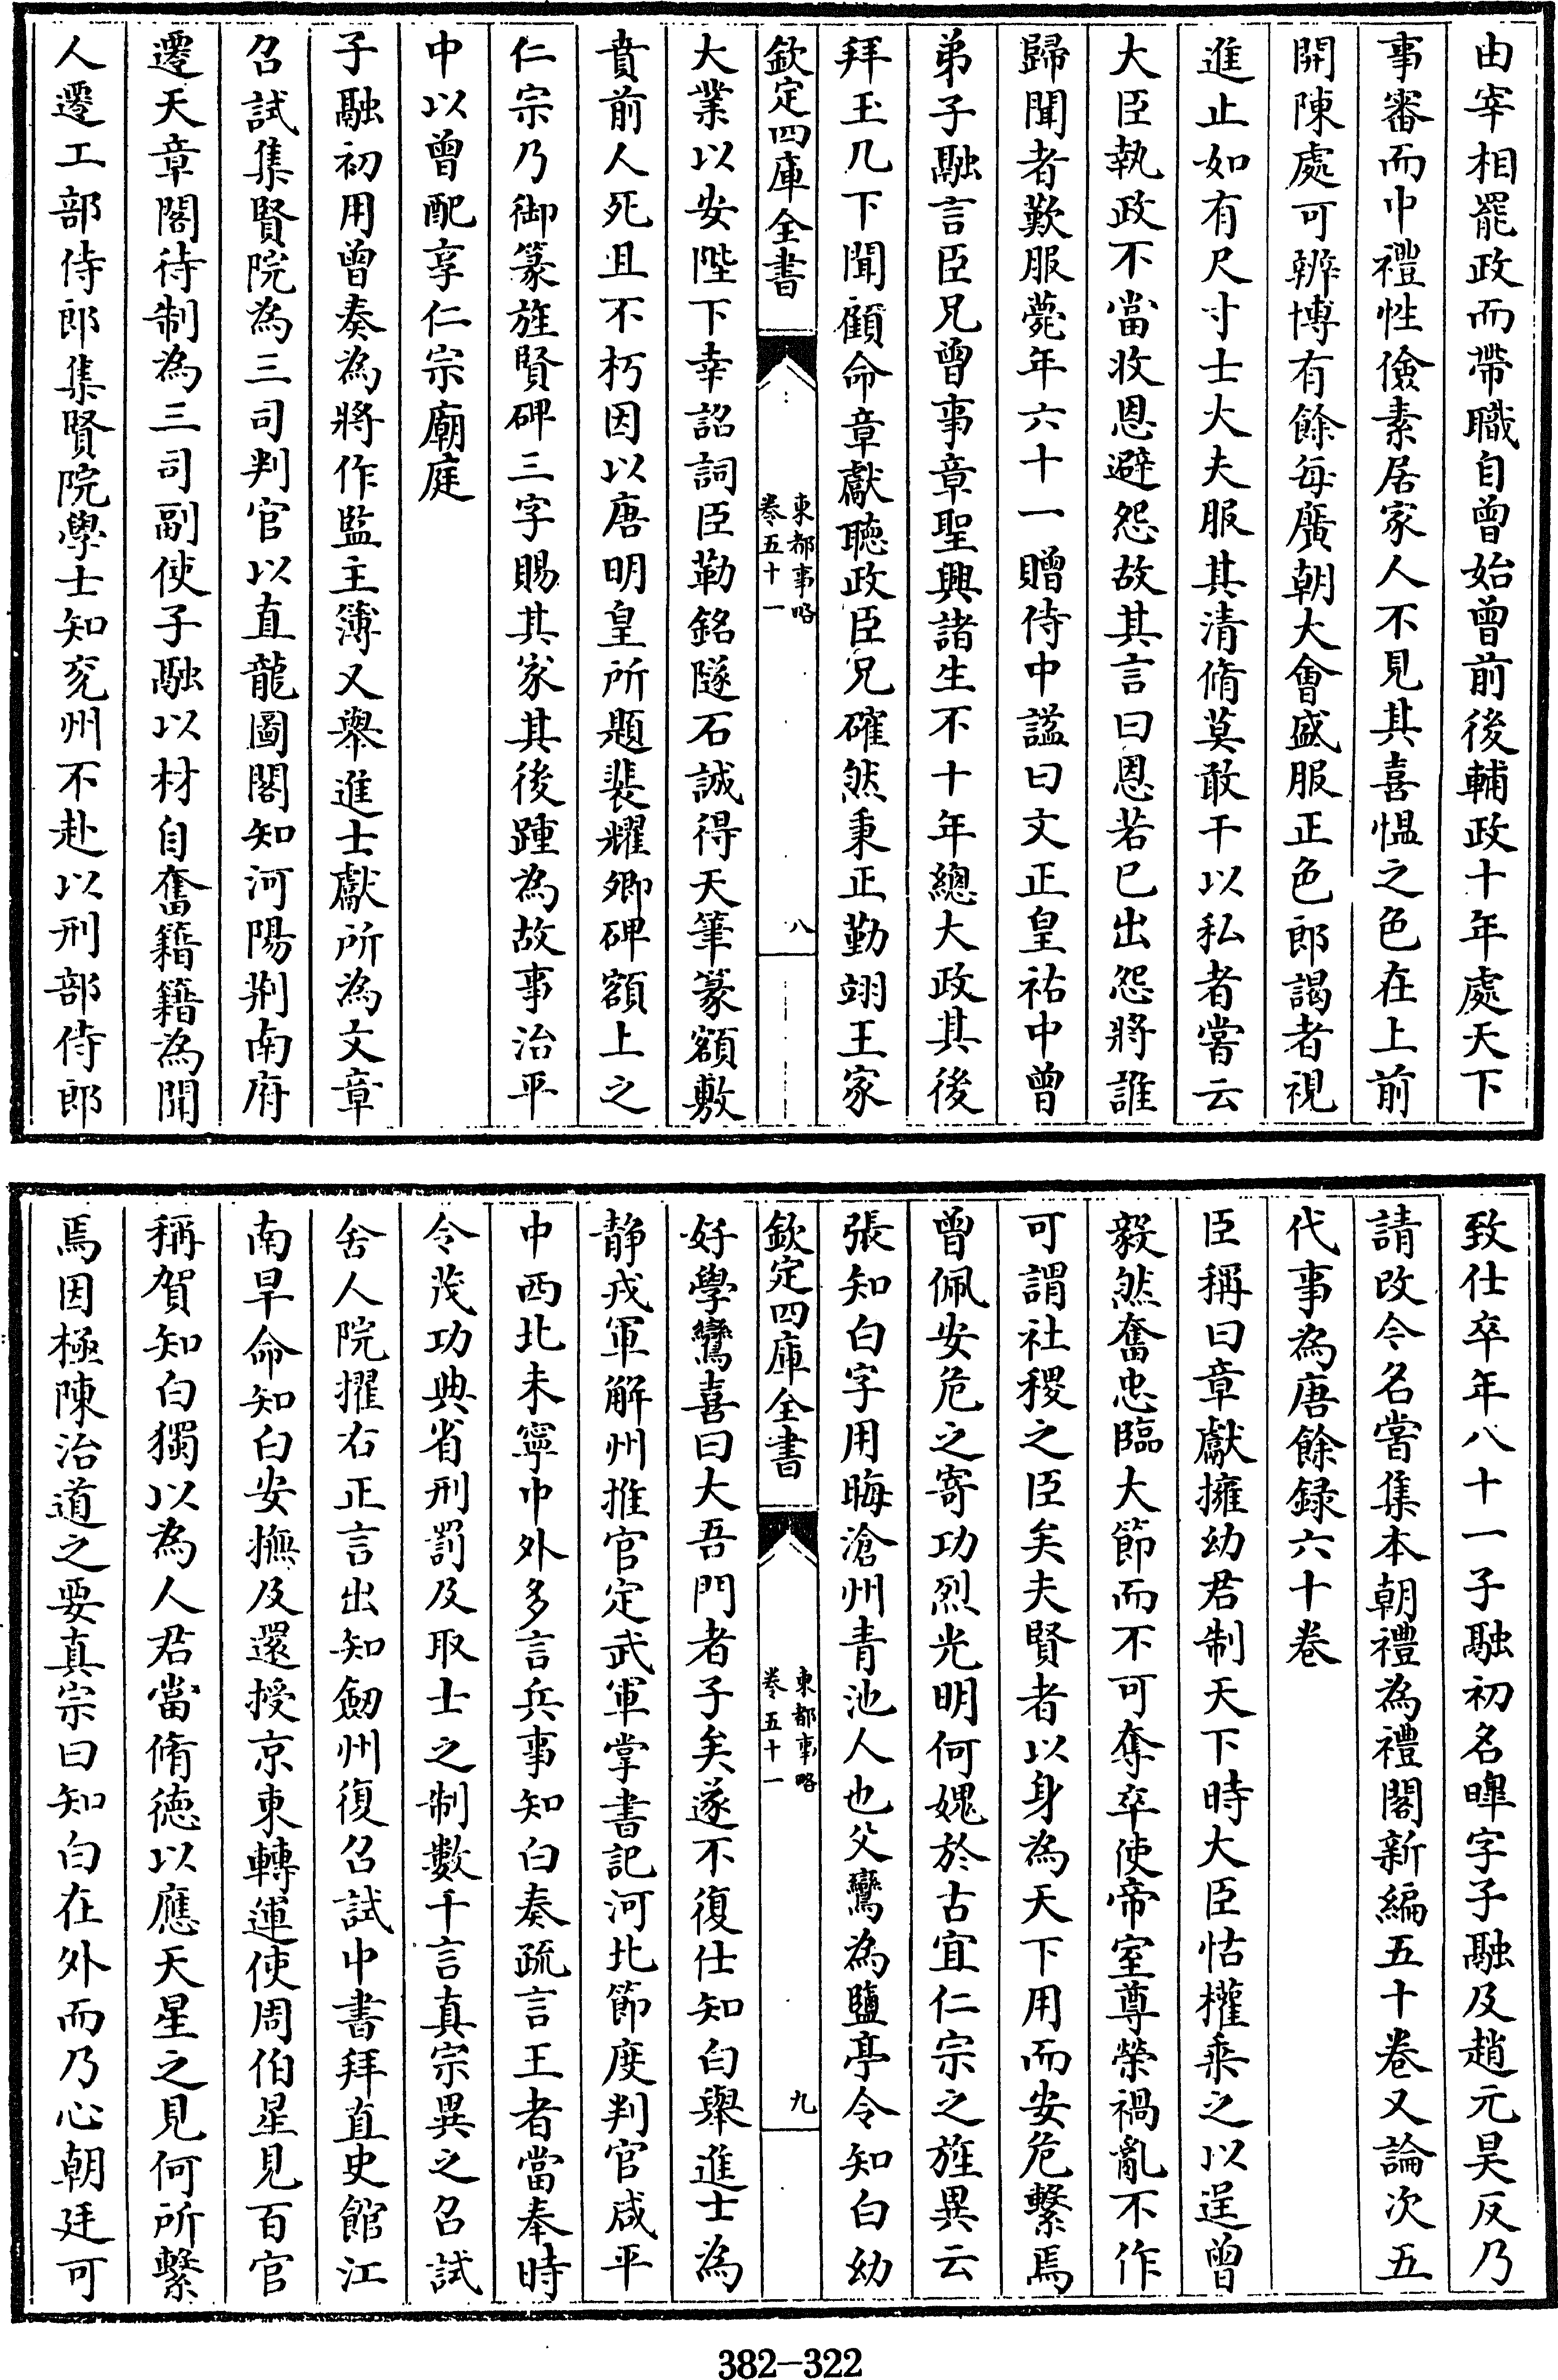 由宰相罷政而帶職自曾始曾前後輔政十年處天下
事審而中禮性儉素居家人不見其喜愠之色在上前
開陳處可辨博有餘每廣朝大會盛服正色郎謁者視
進止如有尺寸士大夫服其清脩莫敢干以私者嘗云
大臣執政不當收恩避怨故其言曰恩若已出怨將誰
歸聞者歎服薨年六十一贈侍中謚曰文正皇祐中曾
弟子融言臣兄曾事章聖興諸生不十年總大政其後
拜玉几下聞顧命章獻聽政臣兄確然秉正勤翊王家
欽定四庫全書
東都事略
卷五十一
八
大業以安陛下幸詔詞臣勒銘隧石誠得天筆篆額敷
賁前人死且不朽因以唐明皇所題裴耀卿碑額上之
仁宗乃御篆旌賢碑三字賜其家其後踵為故事治平
中以曾配享仁宗廟庭
子融初用曾奏為將作監主簿又舉進士獻所為文章
召試集賢院為三司判官以直龍圖閣知河陽荆南府
遷天章閣待制為三司副使子融以材自奮籍籍為聞
人遷工部侍郎集賢院學士知兖州不赴以刑部侍郎
致仕卒年八十一子融初名皥字子融及趙元昊反乃
請改今名嘗集本朝禮為禮閣新編五十卷又論次五
代事為唐餘録六十卷
臣稱曰章獻擁幼君制天下時大臣怙權乘之以逞曾
毅然奮忠臨大節而不可奪卒使帝室尊榮禍亂不作
可謂社稷之臣矣夫賢者以身為天下用而安危繫焉
曾佩安危之寄功烈光明何媿於古宜仁宗之旌異云
張知白字用晦滄州青池人也父鸞為鹽亭令知白幼
欽定四庫全書
東都事略
卷五十一
九
好學鸞喜曰大吾門者子矣遂不復仕知白舉進士為
静戎軍解州推官定武軍掌書記河北節度判官咸平
中西北未寧中外多言兵事知白奏疏言王者當奉時
令茂功典省刑罰及取士之制數千言真宗異之召試
舍人院擢右正言出知劒州復召試中書拜直史館江
南旱命知白安撫及還授京東轉運使周伯星見百官
稱賀知白獨以為人君當脩德以應天星之見何所繫
焉因極陳治道之要真宗曰知白在外而乃心朝廷可
382-322